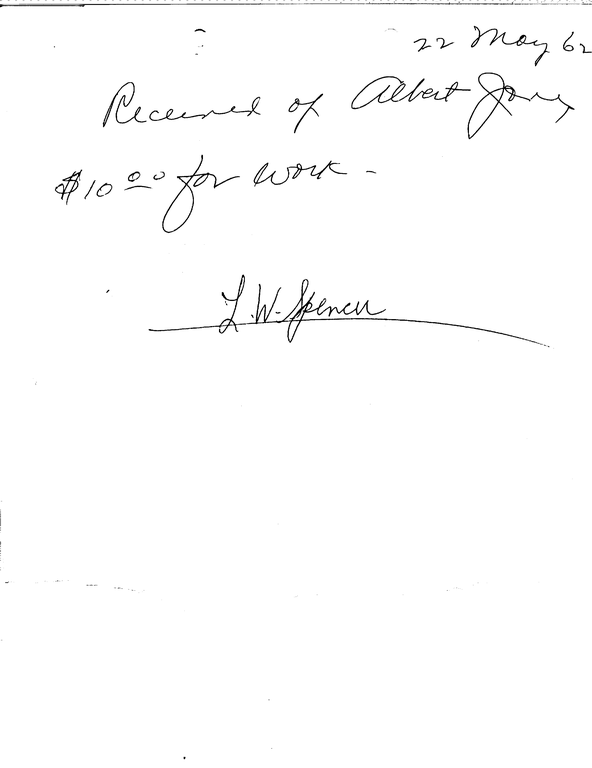 22 May 62
Received of Albert Jones
$10 00 for work -
L.W. Spencer